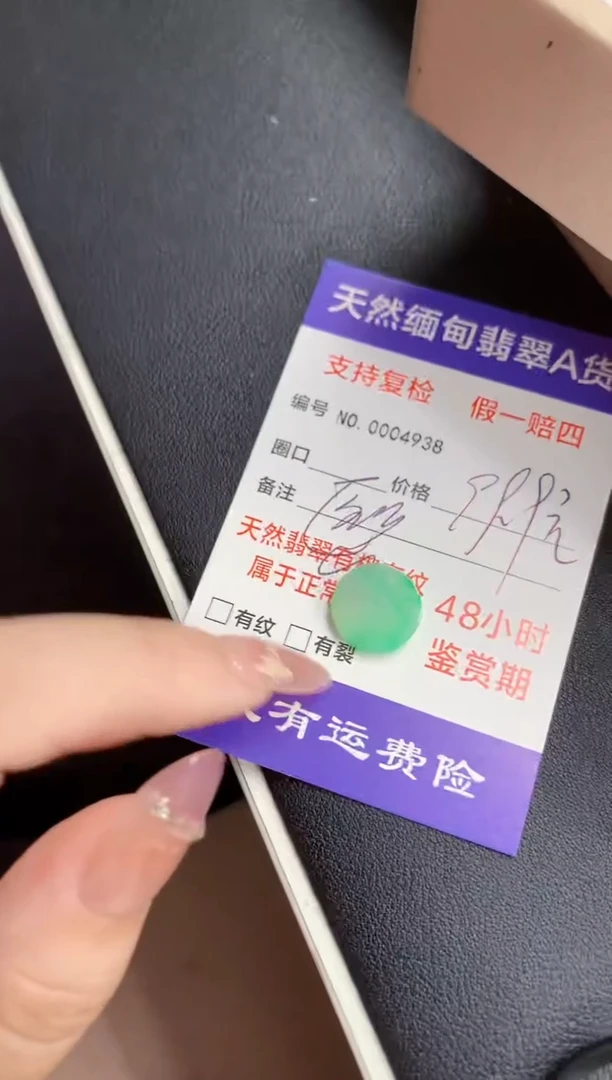 天然缅甸翡翠A货
支持复检 假一赔四
编号 NO. 0004938
圈口 价格
备注
天然翡翠有棉有纹
属于正常
48小时
鉴赏期
□有纹 □有裂
有运费险